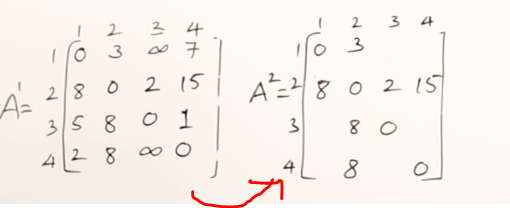 1 2 3 4
1 0 3 ∞ 7
A¹= 2 8 0 2 15
3 5 8 0 1
4 2 8 ∞ 0
1 2 3 4
1 0 3
A²= 2 8 0 2 15
3 8 0
4 8 0